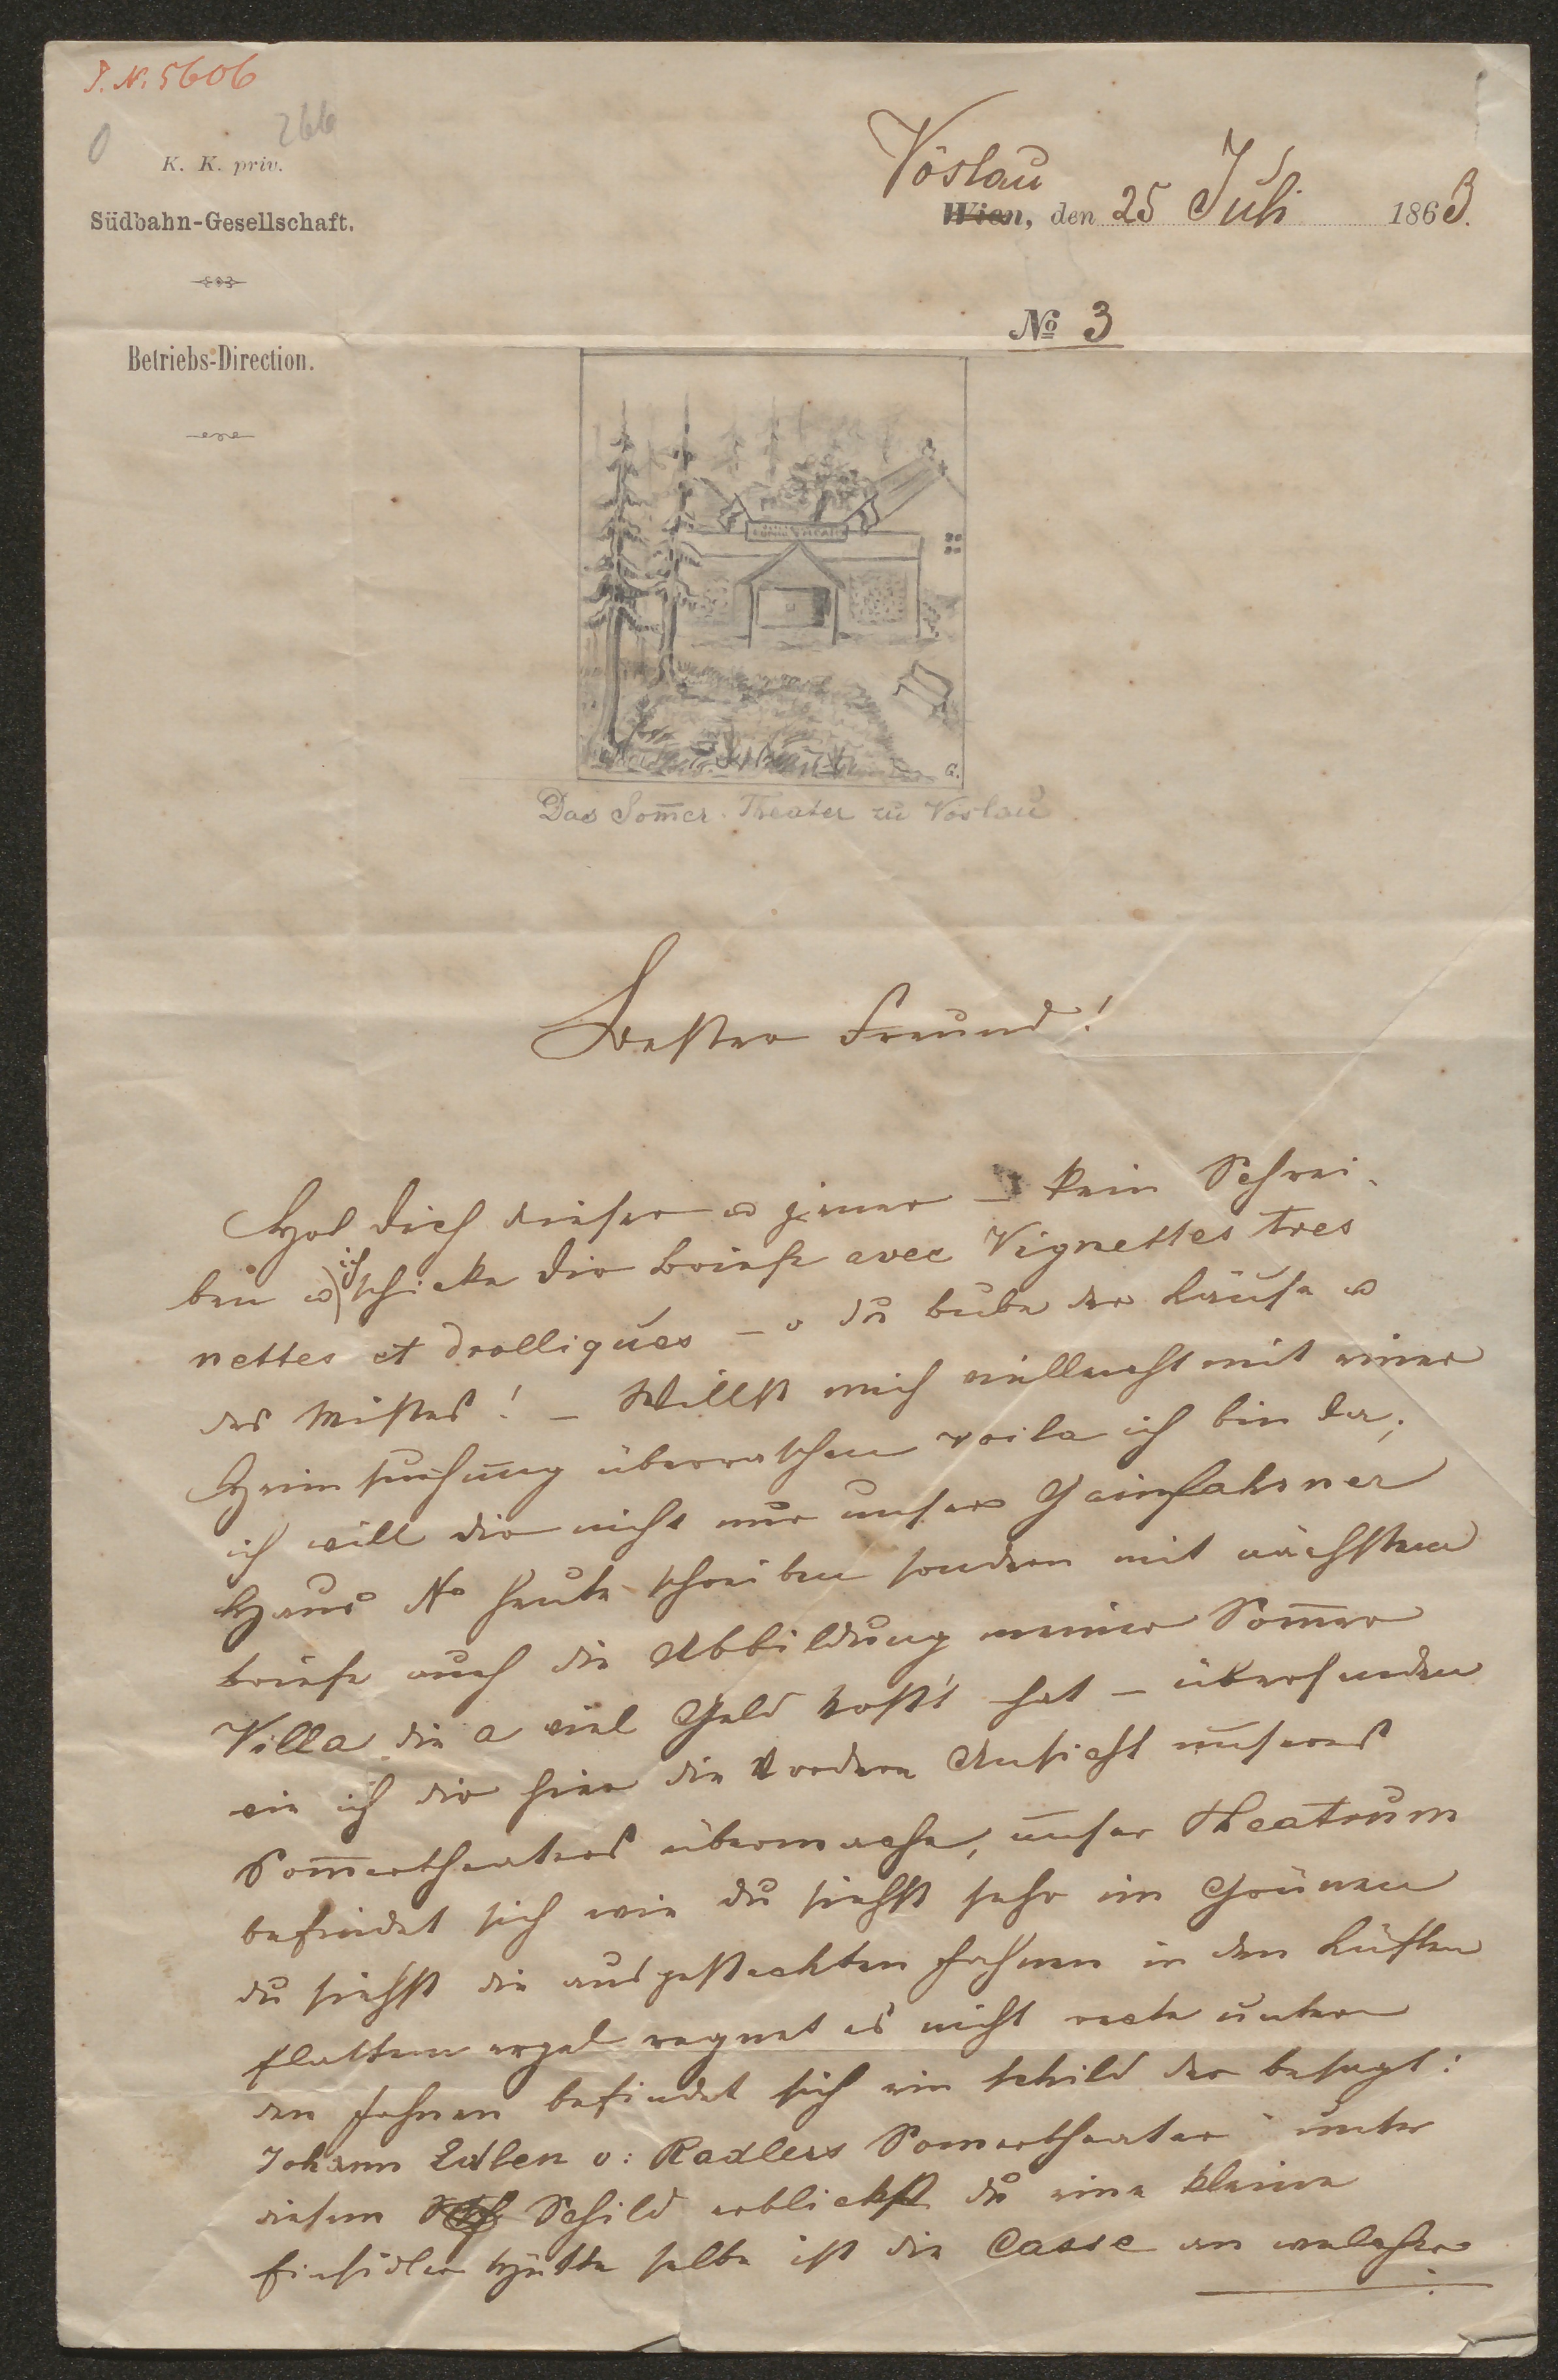 J. N. 5606
266
0
K. K. priv.
Südbahn-Gesellschaft.
Betriebs-Direction.
Vöslau
Wien, den 25 Juli 1863.
No 3
G.
Das Som̄er-Theater zu Voslau
Bester Freund!
Hol dich dieser u jener – kein Schrei-
ben u ich schicke dir Briefe avec Vignettes tres
nettes et drolliques – o du bube der Läuse u
des Mistes! – Willst mich vielleicht mit einer
Heimsuchung überraschen voila ich bin da,
ich will dir nicht nur unsere Gainfahrner
Haus No heute schreiben sondern mit nächstem
briefe auch die Abbildung meiner Som̄er
Villa die a viel Geld kost't hat – übersenden
wie ich dir hier die vordere Ansicht unseres
Som̄ertheaters übermache, unser Theatrum
befindet sich wie du siehst sehr im Grünen
du siehst die ausgesteckten Fahnen in den Lüften
flattern ergel regnet es nicht recte untern
den Fahnen befindet sich ein schild der besagt:
Johann Edlen v: Radlers Som̄ertheater unter
diesem Schild erblickst du eine kleine
Einsidler Hütte selbe ist die Casse an welcher